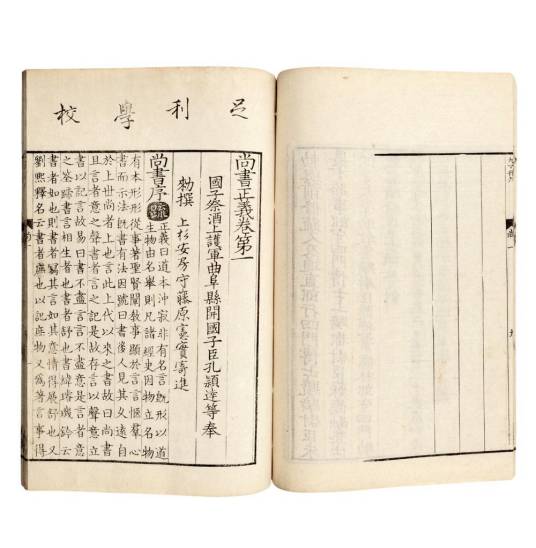 足利學校
尚書正義卷第一
國子祭酒上護軍曲阜縣開國子臣孔穎達等奉
勑撰 上杉安房守藤原憲實寄進
尚書序 疏 正義曰道本沖寂非有名言旣形以道
生物由名舉則凡諸經史因物立名物
有本形形從事著聖賢闡敎事顯於言言愜羣心
書而示法旣書有法因號曰書後人見其久遠自
於上世尚者上也言此上代以來之書故曰尚書
且言者意之聲書者言之記是故存言以聲意立
書以記言故易曰書不盡言言不盡意是言者意
之筌蹄書言相生者也書者舒也書緯璿璣鈐云
書者如也則書者寫其言如其意情得展舒也又
劉熙釋名云書者庶也以記庶物又爲著言事得